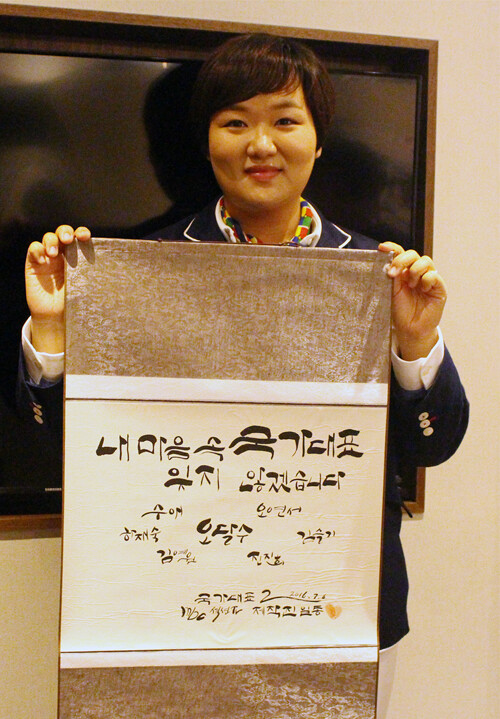 내 마음 속 국가대표
잊지 않겠습니다
수애 오연서
하재숙 오달수 김슬기
김예원 진지희
국가대표 2 2016.7.6
제작진 일동